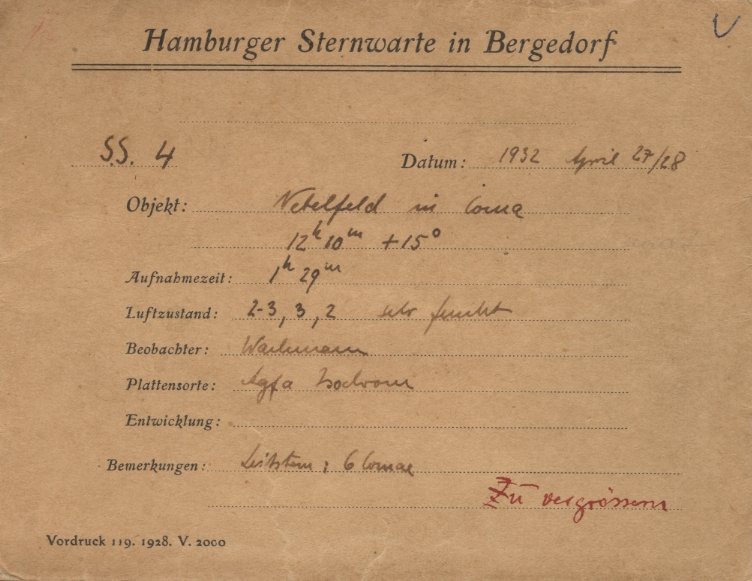 Hamburger Sternwarte in Bergedorf
S.S. 4 Datum: 1932 April 27/28
Objekt: Nebelfeld in Coma
12h 10m +15°
Aufnahmezeit: 1h 29m
Luftzustand: 2-3, 3, 2 sehr feucht
Beobachter: Wachmann
Plattensorte: Agfa Isochrom
Entwicklung:
Bemerkungen: Leitstern: 6 Comae
Zu vergrössern
Vordruck 119. 1928. V. 2000